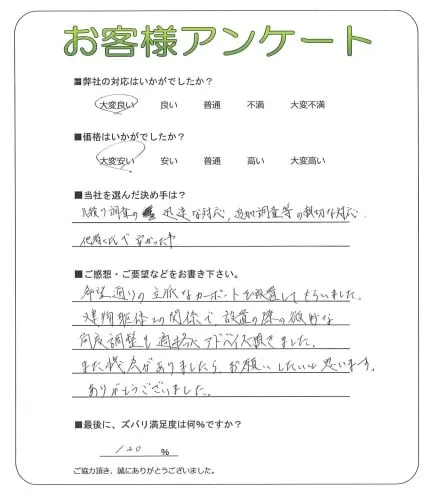 お客様アンケート
■弊社の対応はいかがでしたか？
大変良い 良い 普通 不満 大変不満
■価格はいかがでしたか？
大変安い 安い 普通 高い 大変高い
■当社を選んだ決め手は？
見積り調査の 迅速な対応、追加調査等の親切な対応.
他店くらべ安かった事
■ご感想・ご要望などをお書き下さい。
希望通りの立派なカーポートを設置してもらいました。
建物躯体との関係で、設置の際の微妙な
角度調整も適切にアドバイス頂きました。
また機会がありましたら、お願いしたいと思います。
ありがとうございました。
■最後に、ズバリ満足度は何%ですか？
120 %
ご協力頂き、誠にありがとうございました。